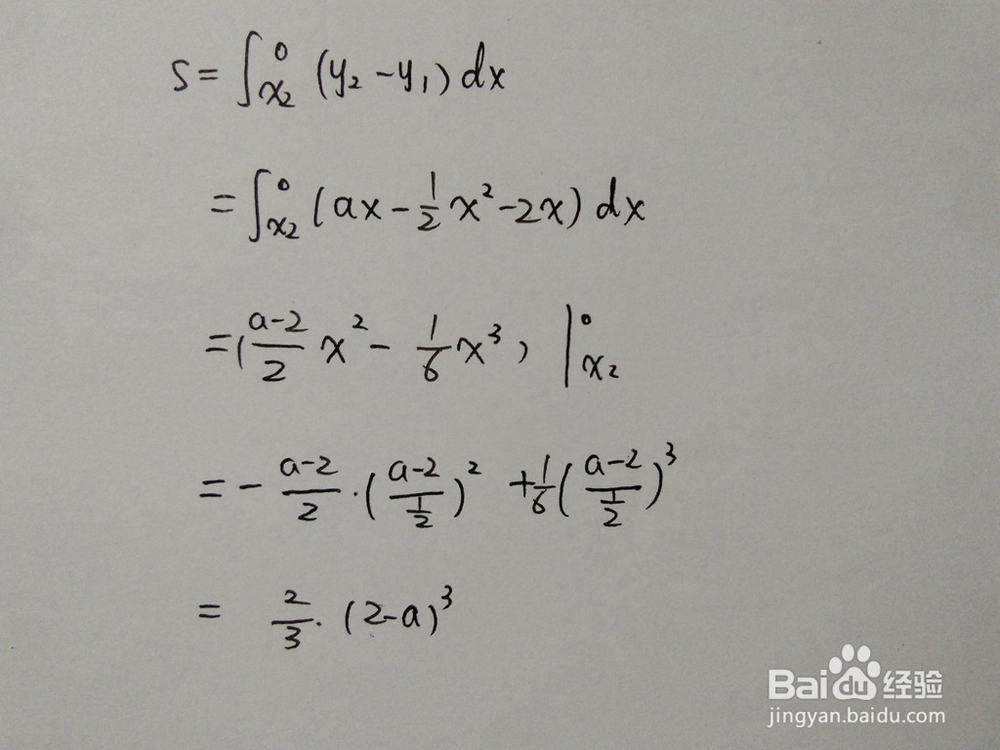 S = ∫_{x₂}^{0} (y₂ - y₁) dx
= ∫_{x₂}^{0} (ax - \frac{1}{2}x² - 2x) dx
= (\frac{a-2}{2} x² - \frac{1}{6}x³) |_{x₂}^{0}
= - \frac{a-2}{2} · (\frac{a-2}{\frac{1}{2}})² + \frac{1}{6}(\frac{a-2}{\frac{1}{2}})³
= \frac{2}{3} · (2-a)³
Baidu 经验
jingyan.baidu.com